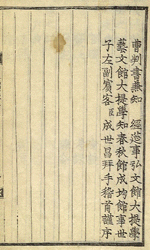 曹判書兼知 經筵事弘文館大提學
藝文館大提學知春秋館成均館事世
子左副賓客臣成世昌拜手稽首謹序